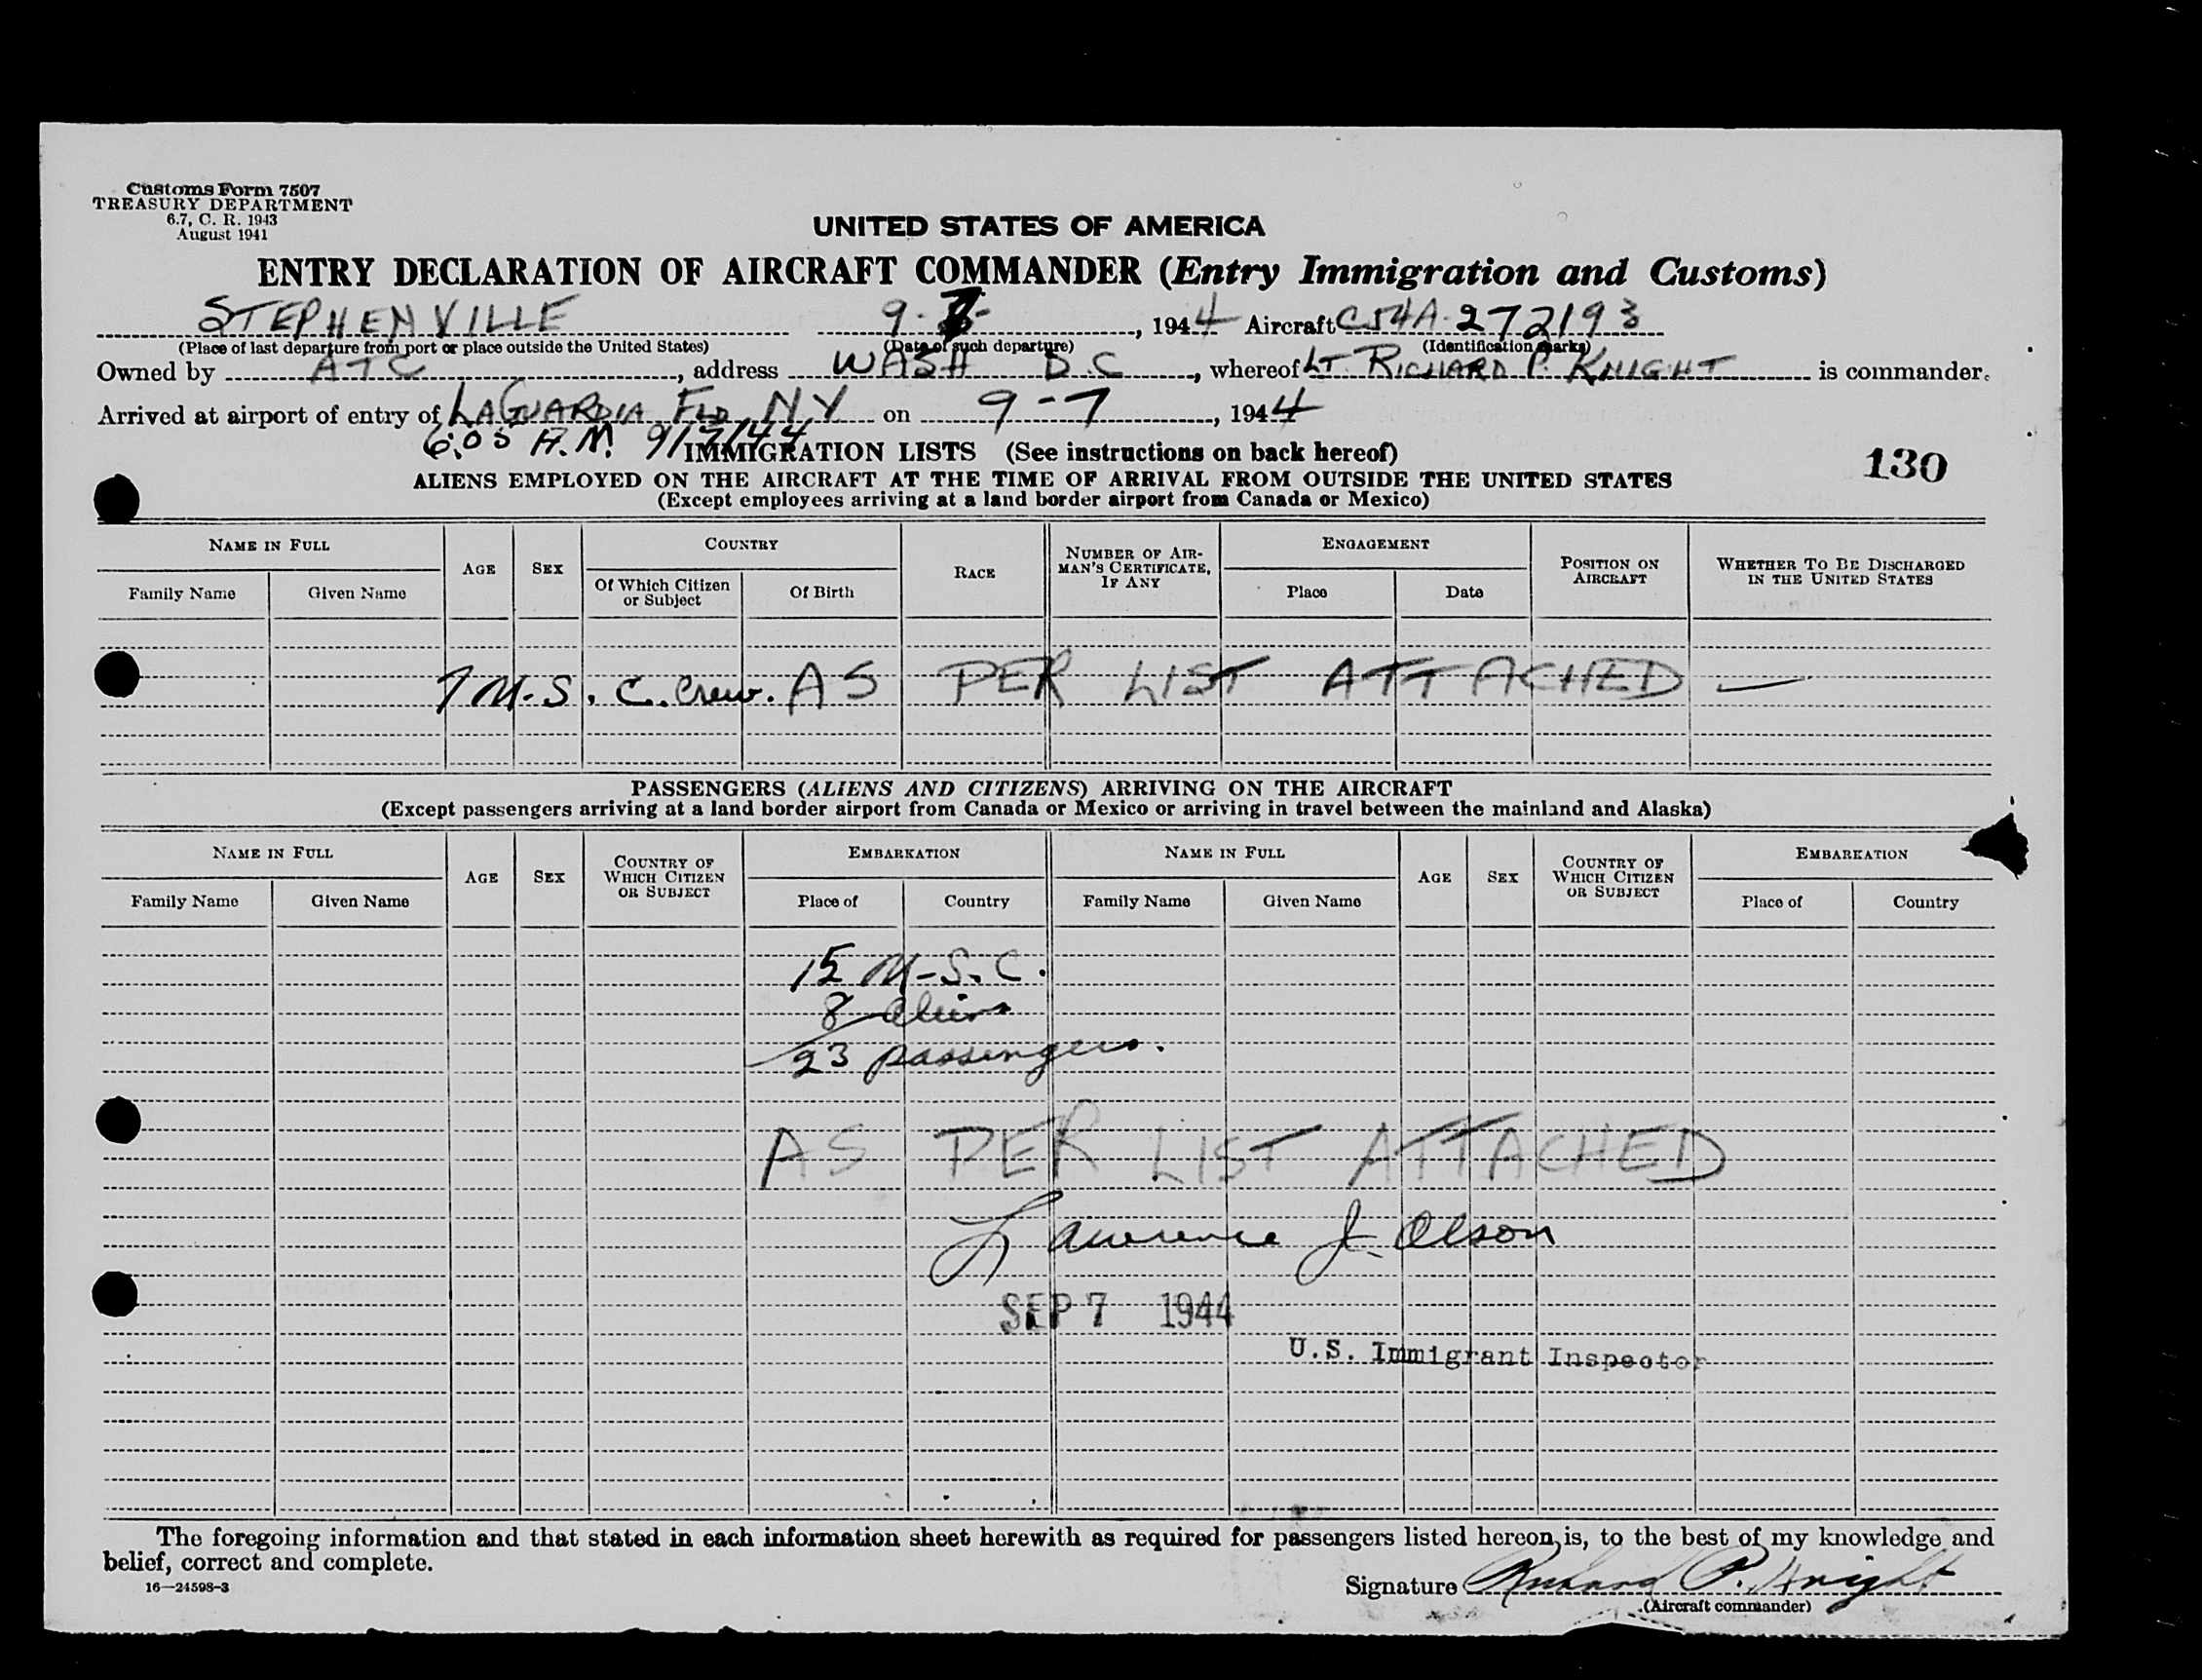 Customs Form 7507
TREASURY DEPARTMENT
6.7, C. R. 1943
August 1941
UNITED STATES OF AMERICA
ENTRY DECLARATION OF AIRCRAFT COMMANDER (Entry Immigration and Customs)
STEPHENVILLE 9-7-, 1944 Aircraft C54A-272193
(Place of last departure from port or place outside the United States) (Date of such departure) (Identification marks)
Owned by ATC, address WASH D.C, whereof LT. RICHARD P. KNIGHT is commander.
Arrived at airport of entry of LAGUARDIA FLD, NY on 9-7, 1944
6:05 A.M. 9/7/44
IMMIGRATION LISTS (See instructions on back hereof)
130
ALIENS EMPLOYED ON THE AIRCRAFT AT THE TIME OF ARRIVAL FROM OUTSIDE THE UNITED STATES
(Except employees arriving at a land border airport from Canada or Mexico)
NAME IN FULL
Family Name Given Name
AGE
SEX
COUNTRY
Of Which Citizen or Subject
Of Birth
RACE
NUMBER OF AIRMAN'S CERTIFICATE, IF ANY
ENGAGEMENT
Place Date
POSITION ON AIRCRAFT
WHETHER TO BE DISCHARGED IN THE UNITED STATES
7 M-S. C. Crew. AS PER LIST ATTACHED —
PASSENGERS (ALIENS AND CITIZENS) ARRIVING ON THE AIRCRAFT
(Except passengers arriving at a land border airport from Canada or Mexico or arriving in travel between the mainland and Alaska)
NAME IN FULL
Family Name Given Name
AGE
SEX
COUNTRY OF WHICH CITIZEN OR SUBJECT
EMBARKATION
Place of Country
NAME IN FULL
Family Name Given Name
AGE
SEX
COUNTRY OF WHICH CITIZEN OR SUBJECT
EMBARKATION
Place of Country
15 M-S. C.
8 aliens
23 passengers.
AS PER LIST ATTACHED
Lawrence J. Olson
SEP 7 1944
U.S. Immigrant Inspector
The foregoing information and that stated in each information sheet herewith as required for passengers listed hereon, is, to the best of my knowledge and
belief, correct and complete.
16—24598-3
Signature Richard P. Knight
(Aircraft commander)